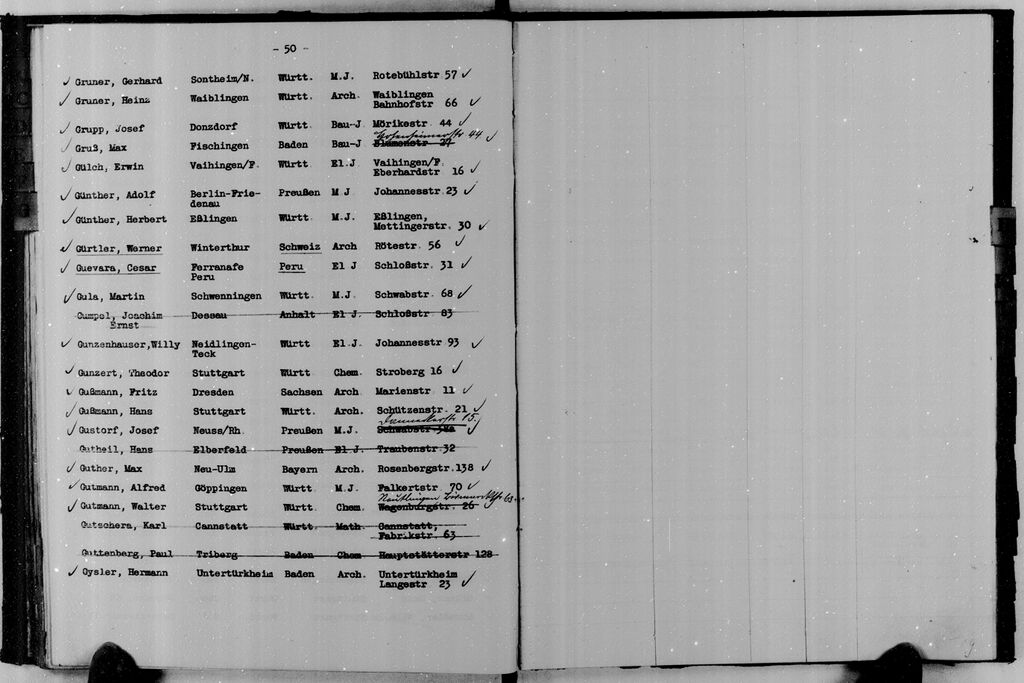 - 50 -
✓ Gruner, Gerhard Sontheim/N. Württ. M.J. Rotebühlstr 57 ✓
✓ Gruner, Heinz Waiblingen Württ. Arch. Waiblingen
Bahnhofstr 66 ✓
✓ Grupp, Josef Donzdorf Württ. Bau-J Mörikestr 44 ✓
44 ✓
✓ Gruß, Max Fischingen Baden Bau-J Blumenstr 27
✓ Gülch, Erwin Vaihingen/F. Württ El.J Vaihingen/F.
Eberhardstr 16 ✓
✓ Günther, Adolf Berlin-Frie- Preußen M J Johannesstr.23 ✓
denau
✓ Günther, Herbert Eßlingen Württ M.J. Eßlingen,
Mettingerstr. 30 ✓
✓ Gürtler, Werner Winterthur Schweiz Arch Rötestr. 56 ✓
✓ Guevara, Cesar Ferranafe Peru El J Schloßstr. 31 ✓
Peru
✓ Gula, Martin Schwenningen Württ. M.J. Schwabstr. 68 ✓
Gumpel, Joachim Dessau Anhalt El J. Schloßstr 83
Ernst
✓ Gunzenhauser,Willy Neidlingen- Württ El.J. Johannesstr 93 ✓
Teck
✓ Gunzert, Theodor Stuttgart Württ Chem. Stroberg 16 ✓
✓ Gußmann, Fritz Dresden Sachsen Arch. Marienstr 11 ✓
✓ Gußmann, Hans Stuttgart Württ. Arch. Schützenstr. 21 ✓
Danneckerstr 15.
✓ Gustorf, Josef Neuss/Rh. Preußen M.J. Schwabstr 38a ✓
Gutheil, Hans Elberfeld Preußen El J. Traubenstr 32
✓ Guther, Max Neu-Ulm Bayern Arch. Rosenbergstr.138 ✓
✓ Gutmann, Alfred Göppingen Württ M.J. Falkertstr 70 ✓
✓ Gutmann, Walter Stuttgart Württ. Chem. Wagenburgstr. 26 ✓
Gutschera, Karl Cannstatt Württ. Math. Cannstatt,
Fabrikstr. 63
Guttenberg, Paul Triberg Baden Chem Hauptstätterstr 128
✓ Gysler, Hermann Untertürkheim Baden Arch. Untertürkheim
Langestr 23 ✓